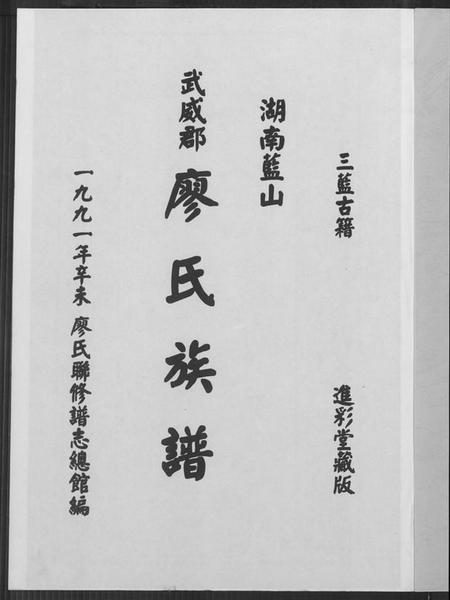 三藍古籍
進彩堂藏版
湖南藍山
武威郡
廖氏族譜
一九九一年辛未 廖氏聯修譜志總館編